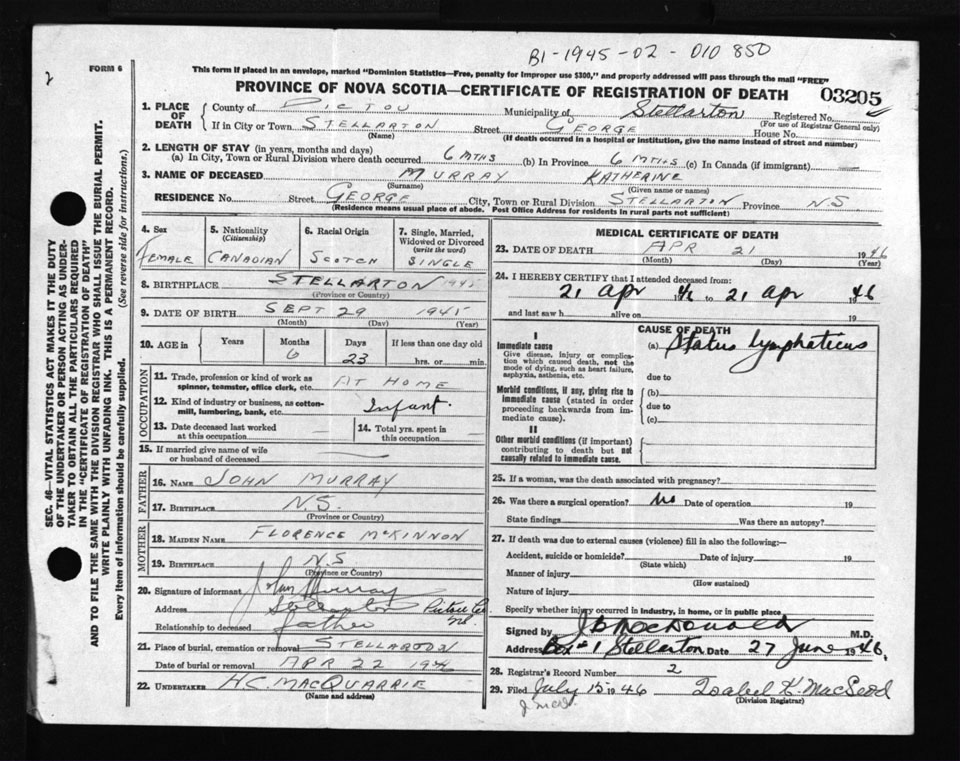 B1-1945-02-010 850
2
FORM 6
This form if placed in an envelope, marked "Dominion Statistics—Free, penalty for improper use $300," and properly addressed will pass through the mail "FREE"
PROVINCE OF NOVA SCOTIA—CERTIFICATE OF REGISTRATION OF DEATH 03205
1. PLACE OF DEATH
County of PICTOU Municipality of Stellarton Registered No.
(For use of Registrar General only)
If in City or Town STELLARTON Street GEORGE House No.
(Name) (If death occurred in a hospital or institution, give the name instead of street and number)
2. LENGTH OF STAY (in years, months and days)
(a) In City, Town or Rural Division where death occurred 6 MTHS (b) In Province 6 MTHS (c) In Canada (if immigrant) —
3. NAME OF DECEASED MURRAY KATHERINE
(Surname) (Given name or names)
RESIDENCE No. Street GEORGE City, Town or Rural Division STELLARTON Province N.S.
(Residence means usual place of abode. Post Office Address for residents in rural parts not sufficient)
SEC. 46—VITAL STATISTICS ACT MAKES IT THE DUTY
OF THE UNDERTAKER OR PERSON ACTING AS UNDER-
TAKER TO OBTAIN ALL THE PARTICULARS REQUIRED
IN THE "CERTIFICATE OF REGISTRATION OF DEATH"
AND TO FILE THE SAME WITH THE DIVISION REGISTRAR WHO SHALL ISSUE THE BURIAL PERMIT.
WRITE PLAINLY WITH UNFADING INK. THIS IS A PERMANENT RECORD.
Every item of information should be carefully supplied. (See reverse side for instructions.)
4. Sex
FEMALE
5. Nationality
(Citizenship)
CANADIAN
6. Racial Origin
SCOTCH
7. Single, Married,
Widowed or Divorced
(write the word)
SINGLE
8. BIRTHPLACE STELLARTON 1945
(Province or Country)
9. DATE OF BIRTH SEPT 29 1945
(Month) (Day) (Year)
10. AGE in
Years Months Days If less than one day old
6 23 hrs. or min.
OCCUPATION
11. Trade, profession or kind of work as
spinner, teamster, office clerk, etc. AT HOME
12. Kind of industry or business, as cotton-
mill, lumbering, bank, etc. Infant.
13. Date deceased last worked
at this occupation —
14. Total yrs. spent in
this occupation —
15. If married give name of wife
or husband of deceased —
FATHER
16. NAME JOHN MURRAY
17. BIRTHPLACE N.S.
(Province or Country)
MOTHER
18. MAIDEN NAME FLORENCE McKINNON
19. BIRTHPLACE N.S
(Province or Country)
20. Signature of informant John Murray
Address Stellarton Pictou Co
N.S.
Relationship to deceased father
21. Place of burial, cremation or removal STELLARTON
Date of burial or removal APR 22 1946
22. UNDERTAKER H.C. MACQUARRIE
(Name and address)
MEDICAL CERTIFICATE OF DEATH
23. DATE OF DEATH APR 21 1946
(Month) (Day) (Year)
24. I HEREBY CERTIFY that I attended deceased from:
21 apr 46 to 21 apr 1946
and last saw h alive on 19
CAUSE OF DEATH
I
Immediate cause
Give disease, injury or complica-
tion which caused death, not the
mode of dying, such as heart failure,
asphyxia, asthenia, etc.
(a) Status lymphaticus
due to
Morbid conditions, if any, giving rise to
immediate cause (stated in order
proceeding backwards from im-
mediate cause).
(b)
due to
(c)
II
Other morbid conditions (if important)
contributing to death but not
causally related to immediate cause.
25. If a woman, was the death associated with pregnancy?
26. Was there a surgical operation? No Date of operation 19
State findings Was there an autopsy?
27. If death was due to external causes (violence) fill in also the following:—
Accident, suicide or homicide? Date of injury 19
(State which)
Manner of injury
(How sustained)
Nature of injury
Specify whether injury occurred in industry, in home, or in public place
Signed by J B MacDonald M.D.
Address Box #1 Stellarton Date 27 June 1946
28. Registrar's Record Number 2
29. Filed July 15 1946 Isabel K. MacLeod
(Division Registrar)